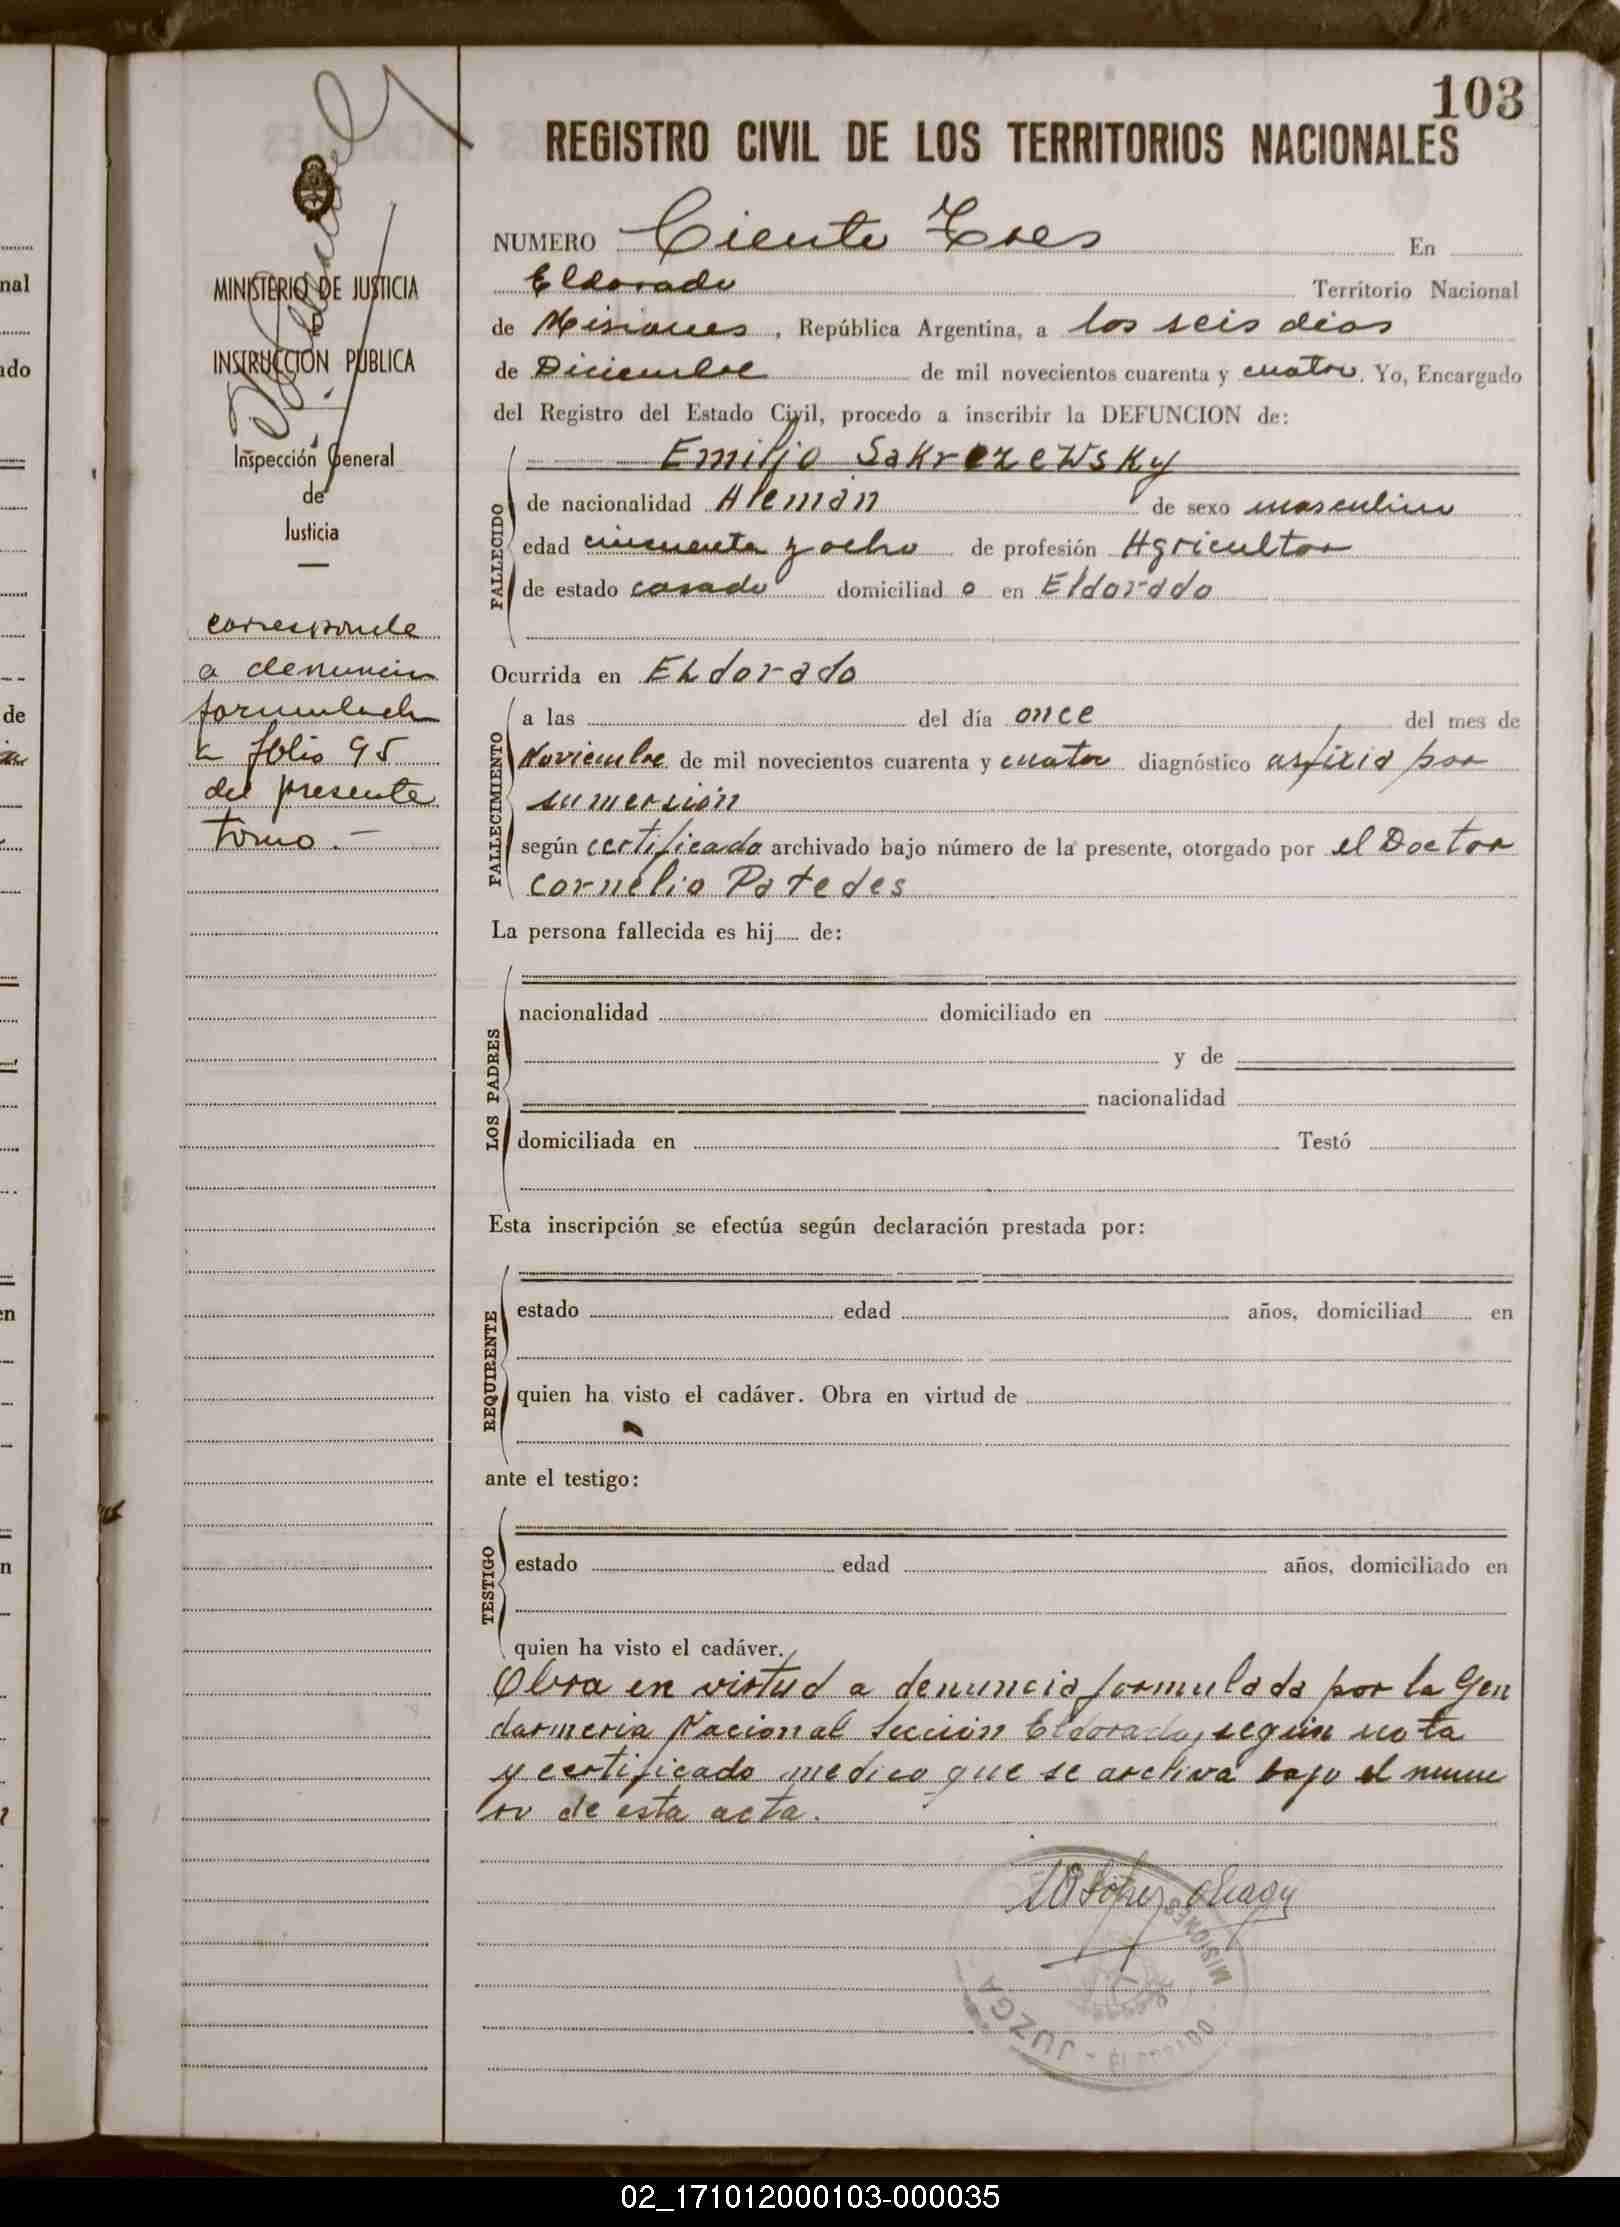 103
REGISTRO CIVIL DE LOS TERRITORIOS NACIONALES
NUMERO Ciento Tres En
Eldorado Territorio Nacional
de Misiones, República Argentina, a los seis dias
de Diciembre de mil novecientos cuarenta y cuatro. Yo, Encargado
del Registro del Estado Civil, procedo a inscribir la DEFUNCION de:
Emilio Sakrezewsky
FALLECIDO
de nacionalidad Alemán de sexo masculino
edad cincuenta y ocho de profesión Agricultor
de estado casado domiciliado en Eldorado
Ocurrida en ELdorado
FALLECIMIENTO
a las del día once del mes de
Noviembre de mil novecientos cuarenta y cuatro diagnóstico asfixia por
sumersión
según certificado archivado bajo número de la presente, otorgado por el Doctor
Cornelio Paredes
La persona fallecida es hij de:
LOS PADRES
nacionalidad domiciliado en
y de
nacionalidad
domiciliada en Testó
Esta inscripción se efectúa según declaración prestada por:
REQUIRENTE
estado edad años, domiciliad en
quien ha visto el cadáver. Obra en virtud de
ante el testigo:
TESTIGO
estado edad años, domiciliado en
quien ha visto el cadáver.
Obra en virtud a denuncia formulada por la Gen
darmeria Nacional Sección Eldorado, según nota
y certificado medico que se archiva bajo el nume
ro de esta acta.
MISIONES
JUZGA
MINISTERIO DE JUSTICIA
E
INSTRUCCION PUBLICA
Inspección General
de
Justicia
corresponde
a denuncia
formulada
a folio 95
del presente
tomo.-
nal
ado
de
en
n
02_171012000103-000035